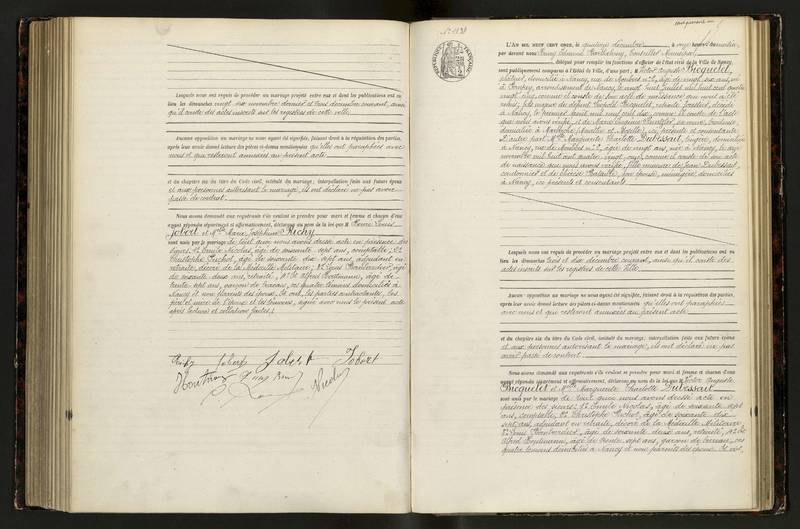 Lesquels nous ont requis de procéder au mariage projeté entre eux et dont les publications ont eu
lieu les dimanches vingt six novembre dernier et trois décembre courant, ainsi
qu'il conste des actes inscrits sur les registres de cette ville
Aucune opposition au mariage ne nous ayant été signifiée, faisant droit à la réquisition des parties,
après leur avoir donné lecture des pièces ci-dessus mentionnées qu'elles ont paraphées avec
nous et qui resteront annexées au présent acte
et du chapitre six du titre du Code civil, intitulé du mariage; interpellation faite aux futurs époux
et aux personnes autorisant le mariage, ils ont déclaré ne pas avoir
passé de contrat.
Nous avons demandé aux requérants s'ils veulent se prendre pour mari et femme et chacun d'eux
ayant répondu séparément et affirmativement, déclarons au nom de la loi que M Louis
Jobert et Mlle Marie Joséphine Richy
sont unis par le mariage de tout quoi nous avons dressé acte en présence des
sieurs: 1° Emile Nicolas, âgé de soixante sept ans, comptable; 2°
Christophe Puchot, âgé de soixante dix sept ans, adjudant en
retraite, décoré de la Médaille Militaire; 3° Louis âgé
de soixante deux ans, retraité; 4° Alfred Houtmann, âgé de
trente sept ans, garçon de bureau, ces quatre témoins domiciliés à
Nancy et non parents des époux. Et ont, les parties contractantes, les
père et mère de l'épouse et les témoins, signé avec nous le présent acte
après lecture et collation faites.
Richy Jobert Jobert Jobert
Houtmann Nicolas
N° 1138
RÉPUBLIQUE FRANÇAISE
L'AN MIL NEUF CENT ONZE, le quatorze décembre, à onze heures du matin,
par devant nous Conseiller Municipal
délégué pour remplir les fonctions d'officier de l'état civil de la Ville de Nancy,
sont publiquement comparus à l'Hôtel de Ville, d'une part: Victor Auguste Becquelet,
domicilié à Nancy, rue de n° 2, âgé de vingt six ans, né
à Pompey, arrondissement de Nancy, le vingt huit juillet mil huit cent quatre
vingt cinq, comme il conste de son acte de naissance que nous a été
remis; fils majeur de défunt Léopold Becquelet, décédé
à Nancy, le premier août mil neuf cent dix, comme il conste de l'acte
que nous avons vérifié, et de Marie sa veuve,
domiciliée à (Meurthe et Moselle), ici présente et consentante.
D'autre part Mlle Marguerite Charlotte Dubessait, lingère, domiciliée
à Nancy, rue de n° 2, âgée de vingt ans, née à Nancy, le
novembre mil huit cent quatre vingt onze, comme il conste de son acte
de naissance que nous avons vérifié, fille mineure de Jean Dubessait,
cordonnier et de son épouse, ménagère, domiciliés
à Nancy, ici présents et consentants.
Lesquels nous ont requis de procéder au mariage projeté entre eux et dont les publications ont eu
lieu les dimanches trois et dix décembre courant, ainsi qu'il conste des
actes inscrits sur les registres de cette ville.
Aucune opposition au mariage ne nous ayant été signifiée, faisant droit à la réquisition des parties,
après leur avoir donné lecture des pièces ci-dessus mentionnées qu'elles ont paraphées
avec nous et qui resteront annexées au présent acte
et du chapitre six du titre du Code civil, intitulé du mariage; interpellation faite aux futurs époux
et aux personnes autorisant le mariage, ils ont déclaré ne pas
avoir passé de contrat
Nous avons demandé aux requérants s'ils veulent se prendre pour mari et femme et chacun d'eux
ayant répondu séparément et affirmativement, déclarons au nom de la loi que M Victor Auguste
Becquelet et Mlle Marguerite Charlotte Dubessait
sont unis par le mariage de tout quoi nous avons dressé acte en
présence des sieurs: 1° Emile Nicolas, âgé de soixante sept
ans, comptable; 2° Christophe Puchot, âgé de soixante dix
sept ans, adjudant en retraite, décoré de la Médaille Militaire
3° Louis âgé de soixante deux ans, retraité; 4°
Alfred Houtmann, âgé de trente sept ans, garçon de bureau, ces
quatre témoins domiciliés à Nancy et non parents des époux. Et ont,